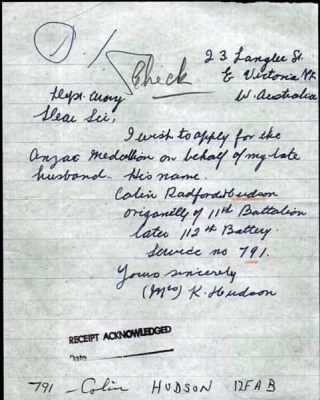 Check
23 Langler St.
E Victoria Pk
W. Australia
Dept. Army
Dear Sir,
I wish to apply for the
Anzac Medallion on behalf of my late
husband. His name.
Colin Radford Hudson
origanilly of 11th Battalion
later 112th Battery.
Service no 791.
Yours sincerely
(Mrs) K. Hudson
RECEIPT ACKNOWLEDGED
Date
791 - Colin HUDSON 12FAB